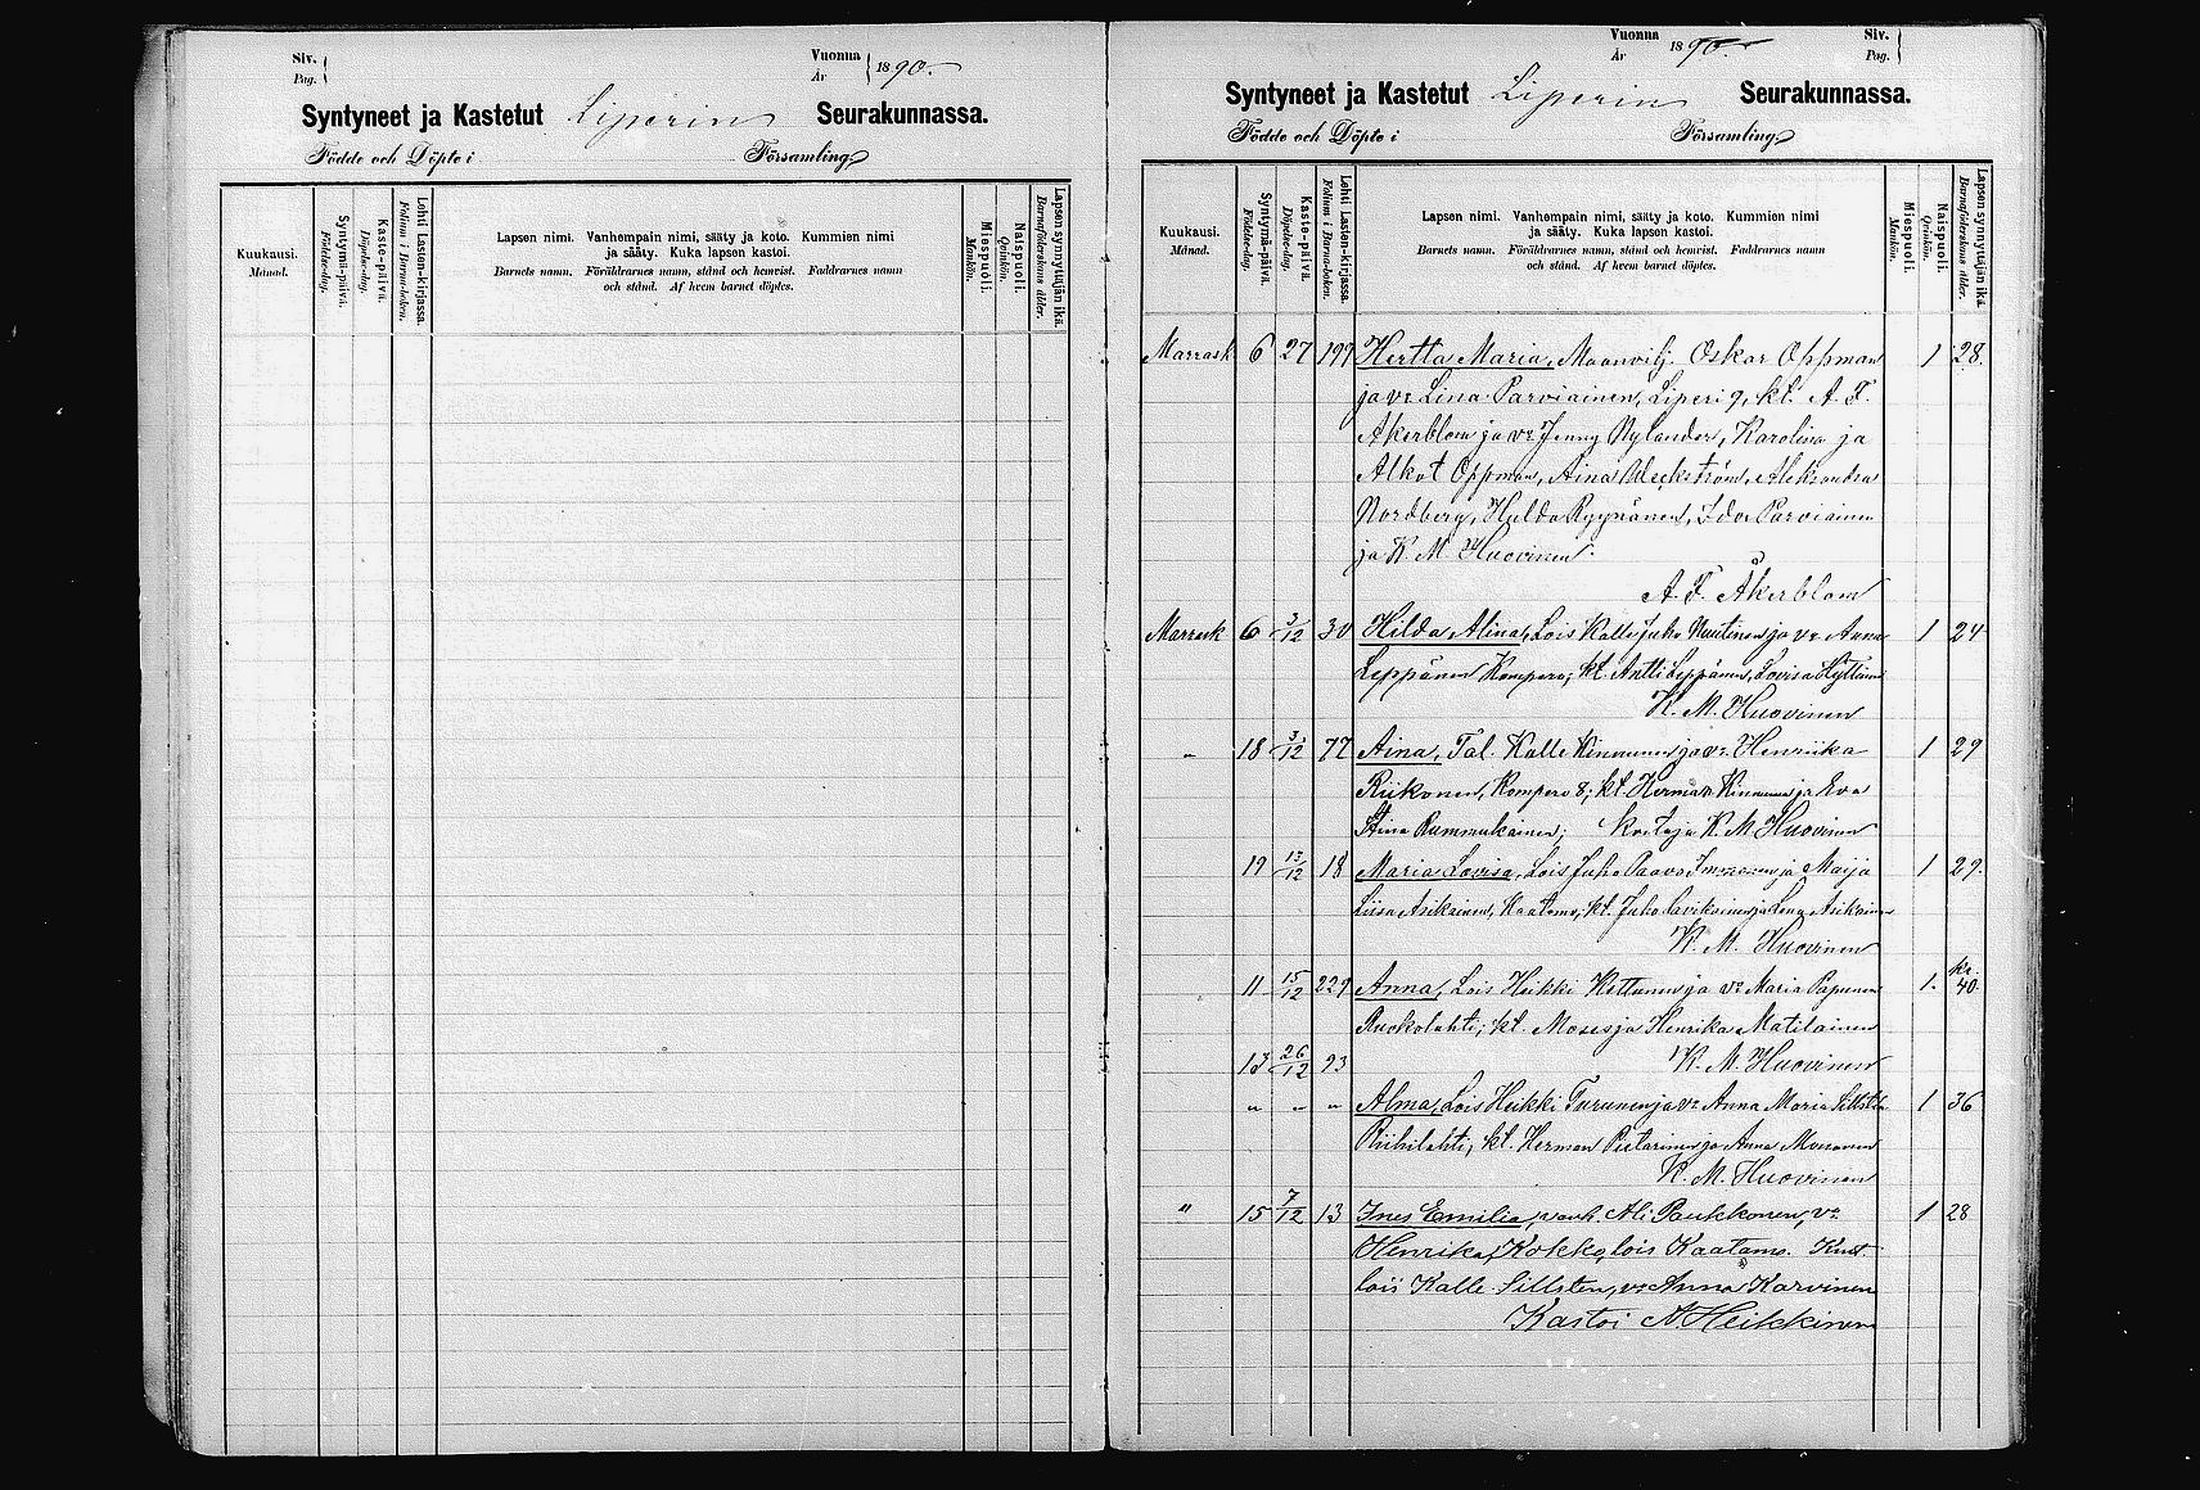 Siv.
Pag.
Vuonna
År
1890.
Syntyneet ja Kastetut Liperin Seurakunnassa.
Födde och Döpte i Församling.
Kuukausi.
Månad.
Syntymä-päivä.
Födelse-dag.
Kaste-päivä.
Döpelse-dag.
Lehti Lasten-kirjassa.
Folium i Barna-boken.
Lapsen nimi. Vanhempain nimi, sääty ja koto. Kummien nimi
ja sääty. Kuka lapsen kastoi.
Barnets namn. Föräldrarnes namn, stånd och hemvist. Faddrarnes namn
och stånd. Af hvem barnet döptes.
Miespuoli.
Mankön.
Naispuoli.
Qvinkön.
Lapsen synnyttäjän ikä.
Barnaföderskans ålder.
Vuonna
År
1890.
Siv.
Pag.
Syntyneet ja Kastetut Liperin Seurakunnassa.
Födde och Döpte i Församling.
Kuukausi.
Månad.
Syntymä-päivä.
Födelse-dag.
Kaste-päivä.
Döpelse-dag.
Lehti Lasten-kirjassa.
Folium i Barna-boken.
Lapsen nimi. Vanhempain nimi, sääty ja koto. Kummien nimi
ja sääty. Kuka lapsen kastoi.
Barnets namn. Föräldrarnes namn, stånd och hemvist. Faddrarnes namn
och stånd. Af hvem barnet döptes.
Miespuoli.
Mankön.
Naispuoli.
Qvinkön.
Lapsen synnyttäjän ikä.
Barnaföderskans ålder.
Marrask 6 27 199 Hertta Maria, Maanvilj. Oskar Oppman 1 28.
ja vo Lina Parviainen, Liperi 9, kt. A. F.
Akerblom ja vo Jenny Nylander, Karolina ja
Oppman, Aina Weckström, Aleksandra
Nordberg, Hulda Ryynänen, Ida Parviainen
ja K. M. Huovinen.
A. F. Åkerblom
Marrask 6 3/12 30 Hilda Alina, Lois Kalle Juho Nuutinen ja vo Anna 1 24
Leppänen Kompero; kt. Antti Leppänen, Lovisa Hyttinen
K. M. Huovinen
" 18 3/12 77 Aina, Tal. Kalle Kinnunen ja vo. Henriika 1 29
Riikonen, Kompero 8; kt. Herman Kinnunen ja Eva
Stina Rummukainen; K. M. Huovinen
19 13/12 18 Maria Lovisa, Lois Juho Paavo Immonen ja Maija 1 29.
Liisa Asikainen, Kaatamo; kt. Juho Lavikainen ja Lena Asikainen
K. M. Huovinen
11 15/12 229 Anna, Lois Heikki Kettunen ja vo Maria Papunen 1. 40.
Ruokolahti; kt. Moses ja Henrika Matilainen
13 26/12 93 K. M. Huovinen
" " " Alma, Lois Heikki Turunen ja vo Anna Maria Sillstén 1 36
Riihilahti, kt. Herman Pietarinen ja Anna Mononen
K. M. Huovinen
" 15 7/12 13 Ines Emilia, Ali Paukkonen, vo 1 28
Henrika Kokko, lois Kaatamo. Kust.
lois Kalle Sillsten, vo Anna Karvinen
Kastoi A Heikkinen